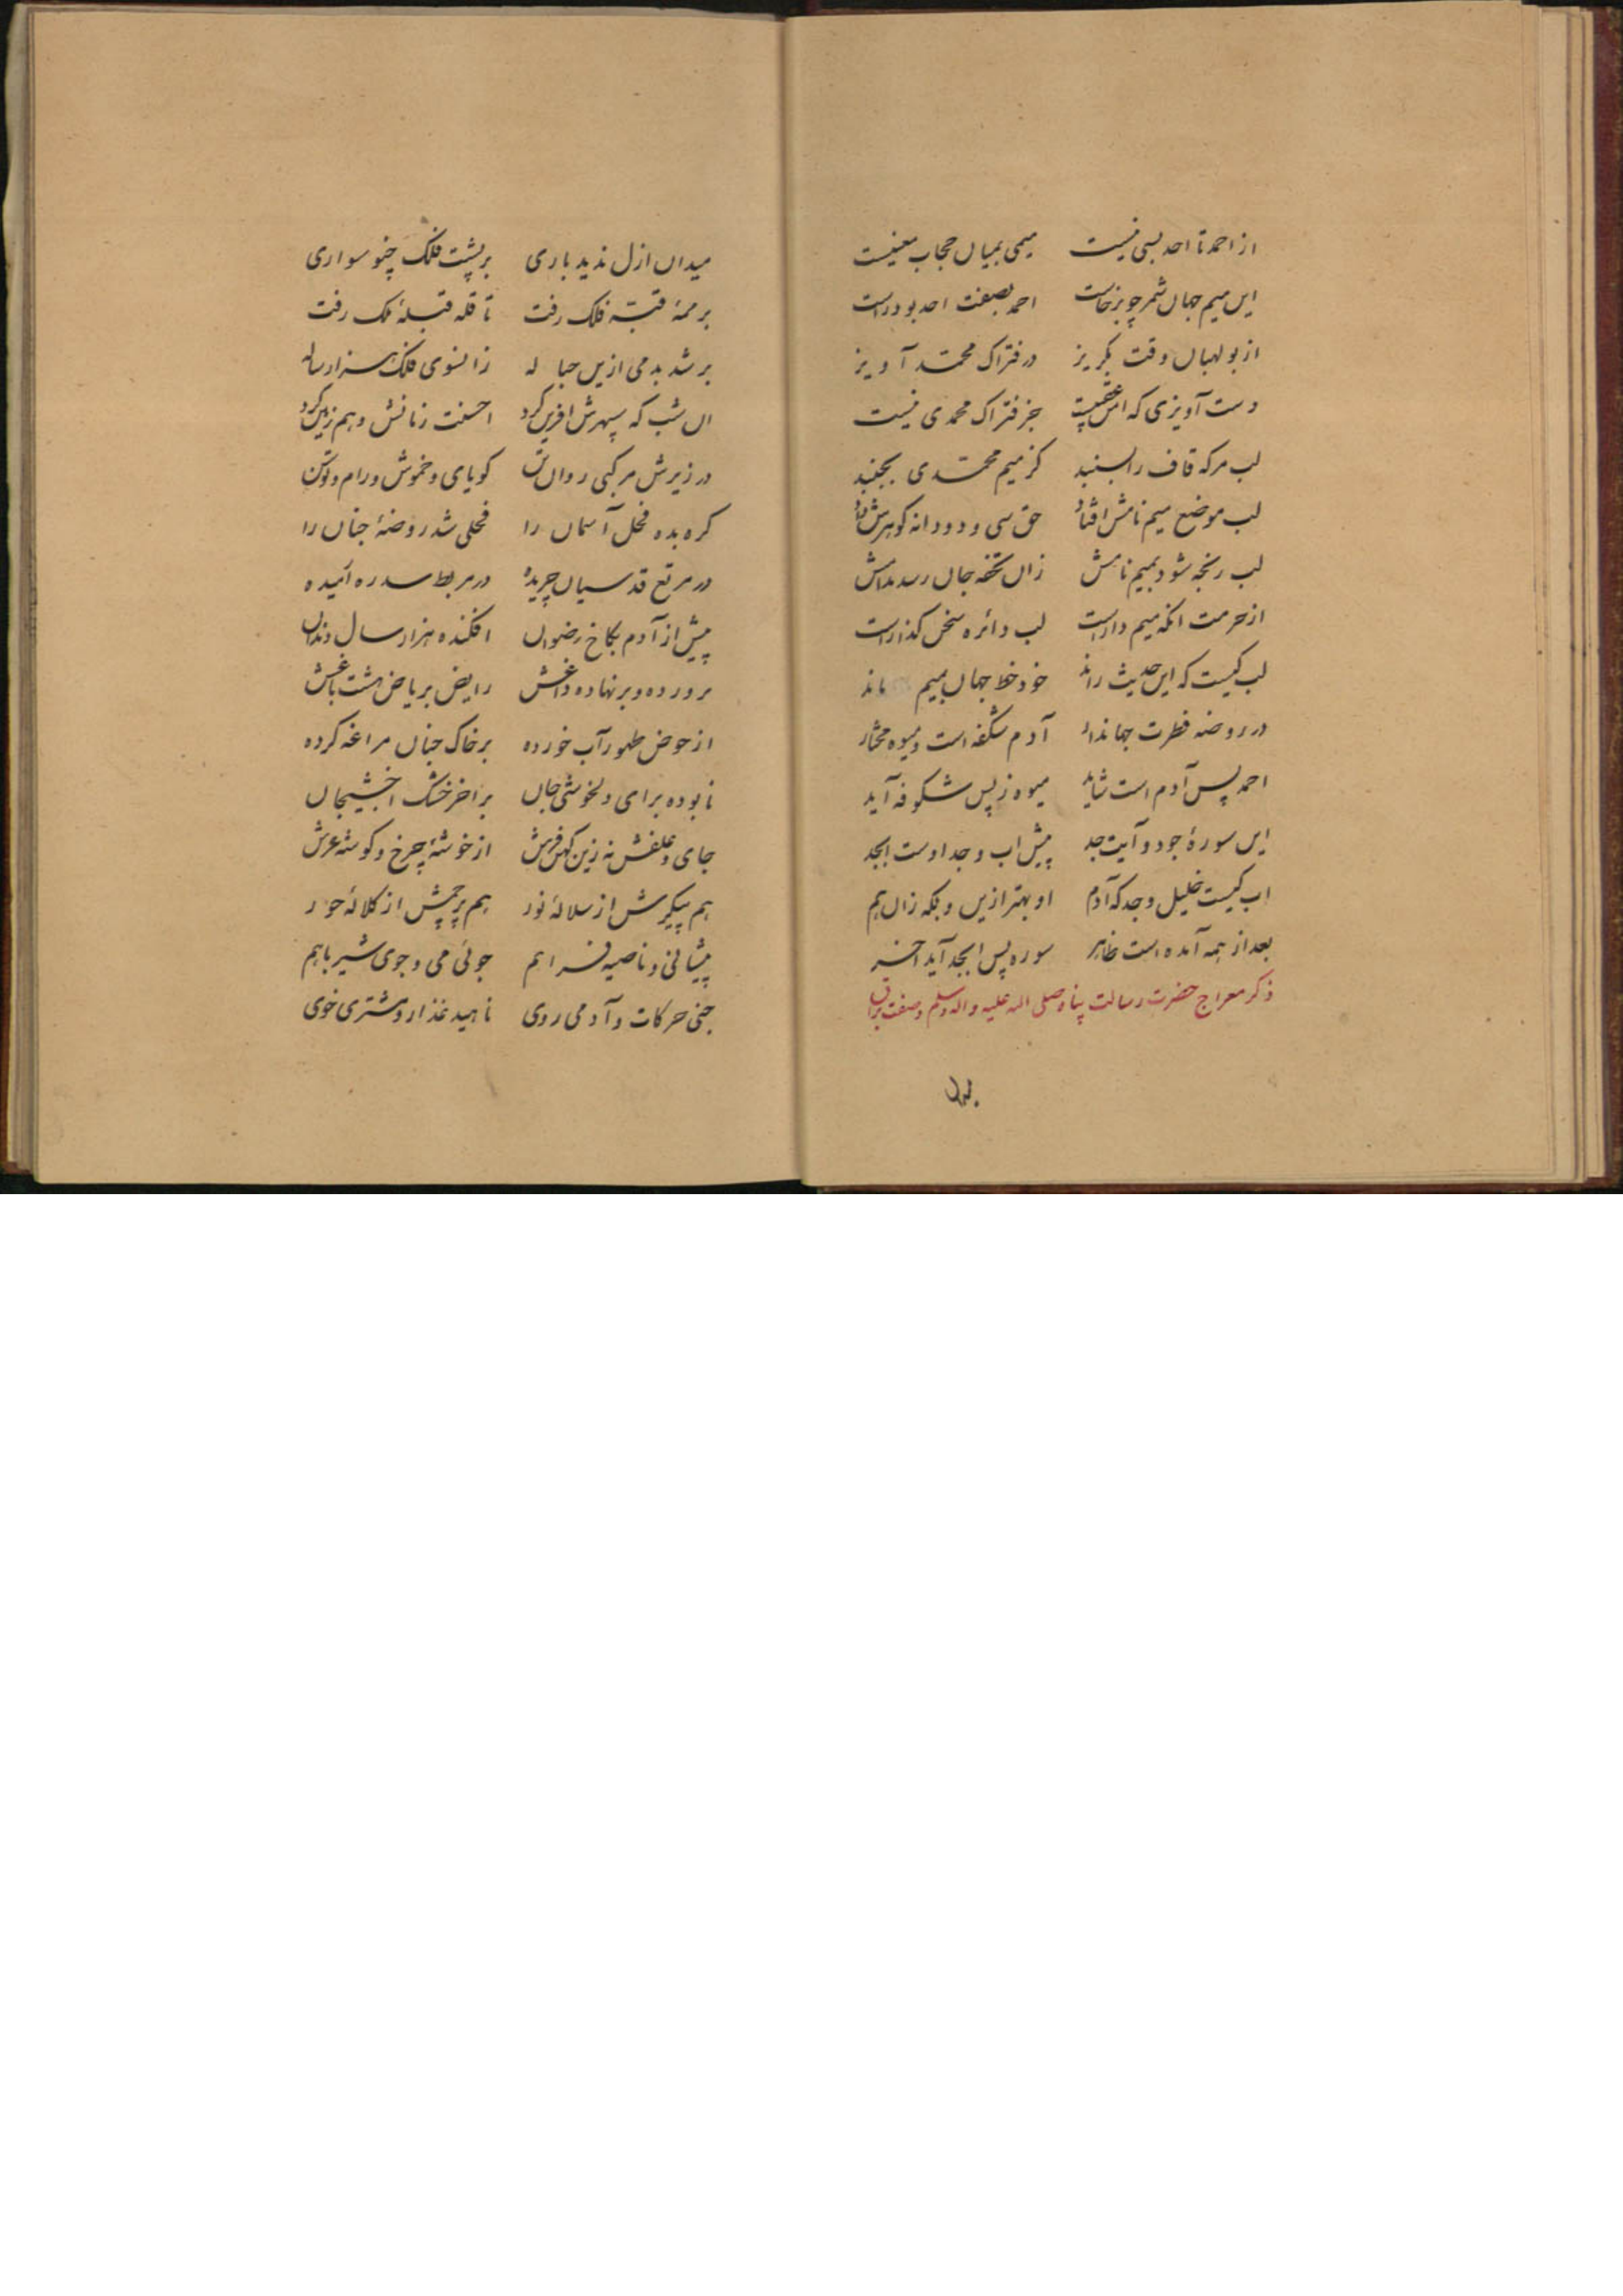 از احمد تا احد بسی نیست میمی بمیان حجاب معنیست
این میم جهان شمر چو برخاست احمد بصفت احد بود راست
از بولهبان وقت بگریز در فتراک محمد آویز
دست آویزی که اس عقبیست جز فتراک محمدی نیست
لب مرکه قاف را بسنبد کز میم محمدی بجنبد
لب موضع میم نامش افتاد حق سی و دو دانه گوهرش داد
لب رنجه شود بمیم نامش زان تحفه جان رسد مدامش
از حرمت انکه میم داراست لب دائره سخن گذاراست
لب کیست که این حدیث راند خود خط جهان بمیم ماند
در روضه فطرت جهاندار آدم شکفه است و میوه مختار
احمد پس آدم است شاید میوه ز پس شکوفه آید
این سورهٔ جود و آیت جد پیش اب و جد اوست ابجد
اب کیست خلیل و جد که آدم او بهتر ازین و بکه زان هم
بعد از همه آمده است ظاهر سوره پس ابجد آید اخر
ذکر معراج حضرت رسالت پناه صلی الله علیه واله وسلم وصفت براق
میدان
میدان ازل ندید باری بر پشت فلک چنو سواری
بر قبهٔ فلک رفت تا قله قبلهٔ ملک رفت
بر شد بدمی ازین حباله زانسوی فلک هزار ساله
ان شب که سپهرش افرین کرد احسنت زنانش وهم زمین کرد
در زیرش مرکبی روان تن گویای و خموش و رام و توسن
کره بده فحل آسمان را فحلی شد روضهٔ جنان را
در مرتع قدسیان چریده در مربط سدره آرمیده
پیش از آدم بکاخ رضوان افکنده هزار سال دندان
پرورده و بر نهاده داغش رایض بریاض هشت باغش
از حوض طهور آب خورده بر خاک جنان مراغه کرده
نابوده برای دلخوشی جان بر اخر خشک اخشیجان
جای و علفش نه زین کهن فرش از خوشهٔ چرخ و گوشه عرش
هم پیکرش از سلالهٔ نور هم پرچمش از کلالهٔ حور
پیشانی و ناصیه فراهم جوئی می و جوی شیر باهم
جنی حرکات و آدمی روی ناهید عذار و مشتری خوی